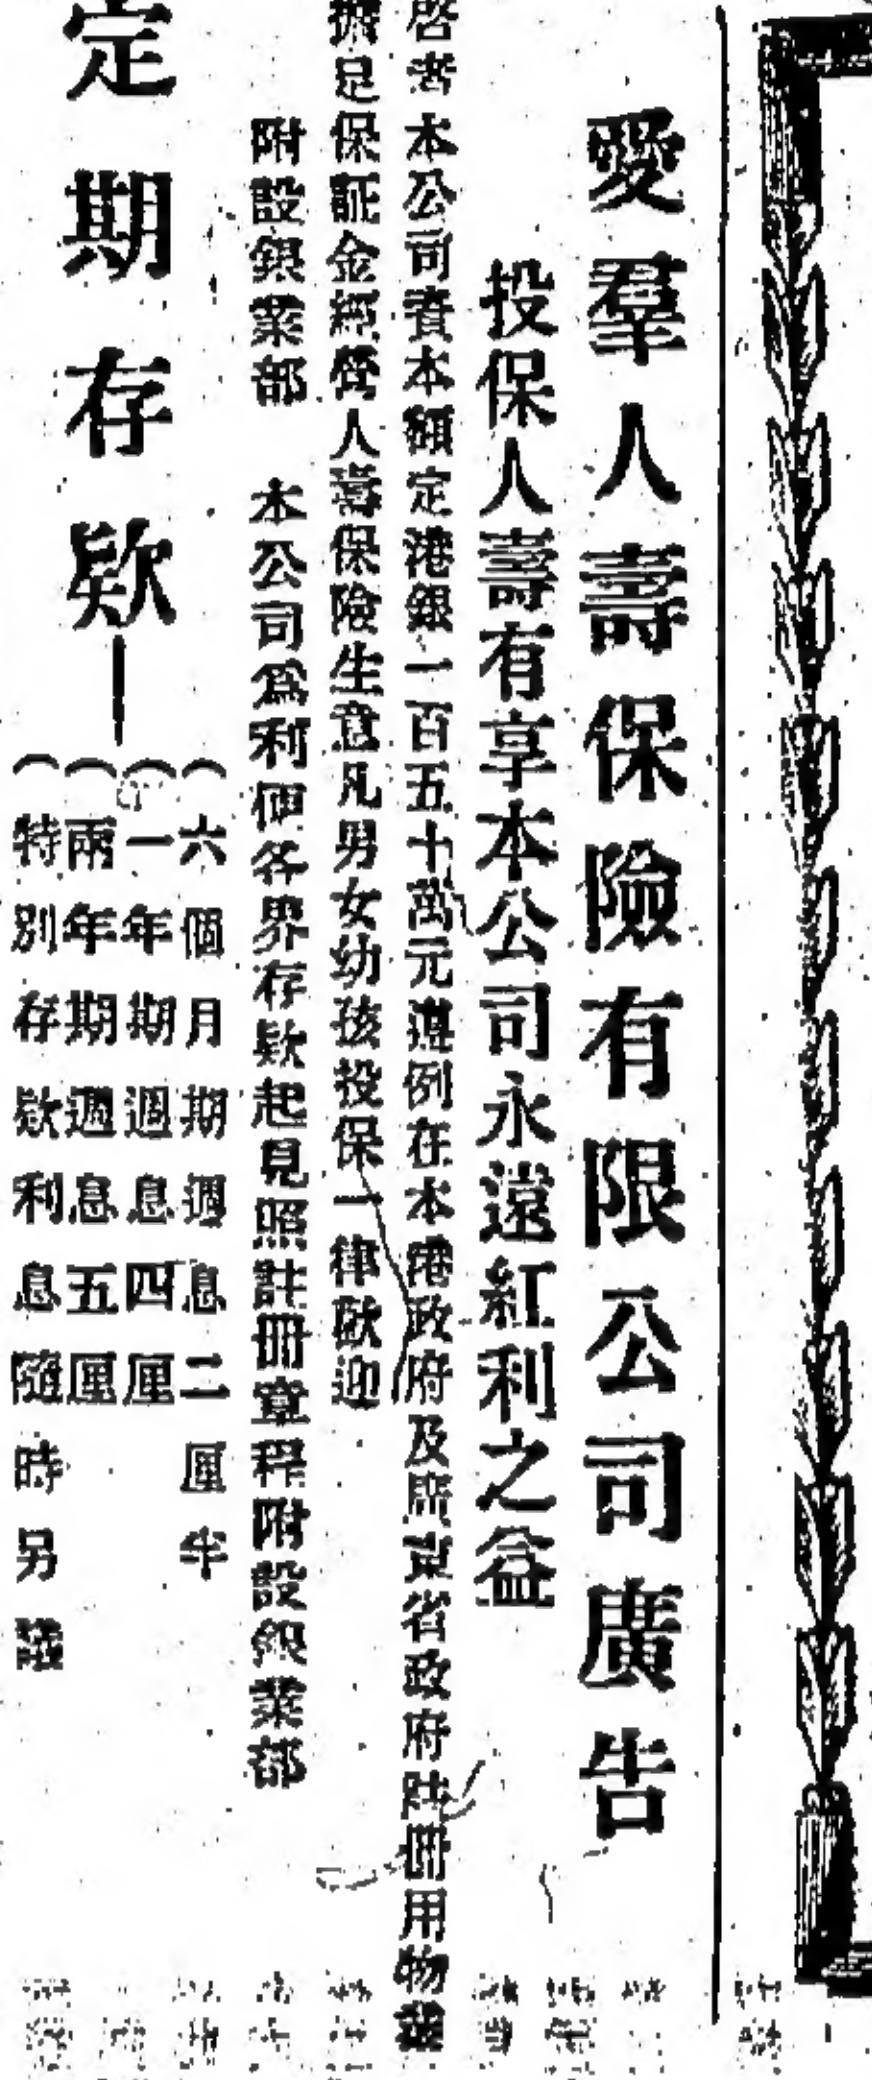 愛羣人壽保險有限公司廣告
投保人壽有享本公司永遠紅利之益
啓者本公司資本額定港銀一百五十萬元遵例在本港政府及廣東省政府註冊用物業
擔足保証金經營人壽保險生意凡男女幼孩投保一律歡迎
附設銀業部 本公司爲利便各界存欵起見照註冊章程附設銀業部
定期存欵
(六個月期週息二厘半
(一年期週息四厘
(兩年期週息五厘
(特別存欵利息隨時另議